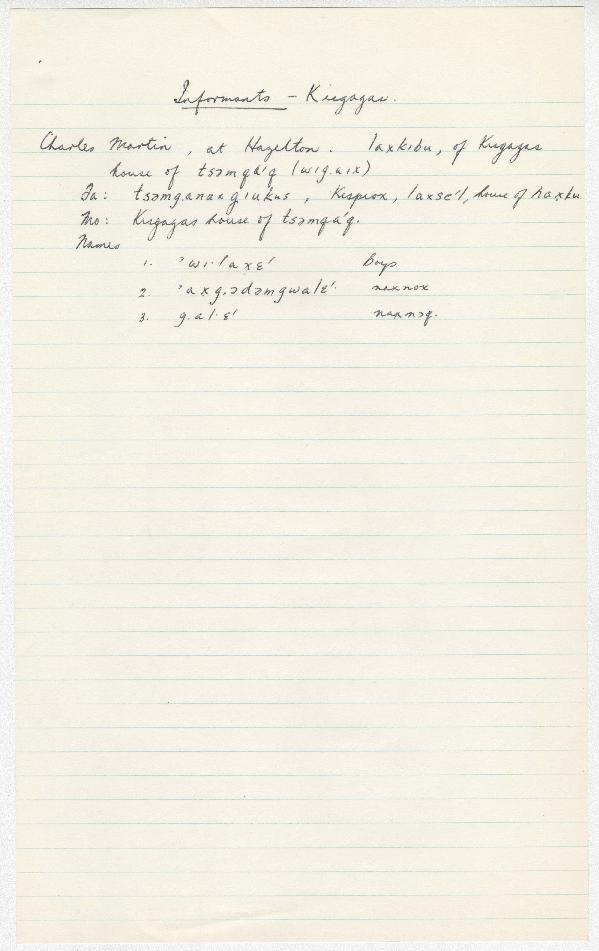 Informants - Kisgagas.
Charles Martin, at Hazelton. laxkıbu, of Kisgagas
house of tsəmqá'q (wıg.aıx)
Fa: tsəmganaxgıukus, Kispiox, laxse'l, house of haxku
Mo: Kisgagas house of tsəmqá'q.
Names
1. 'wı·laxɛ' Boys
2. 'axg.ədəmgwalɛ' naxnox
3. g.al·ɛ' naxnəq.